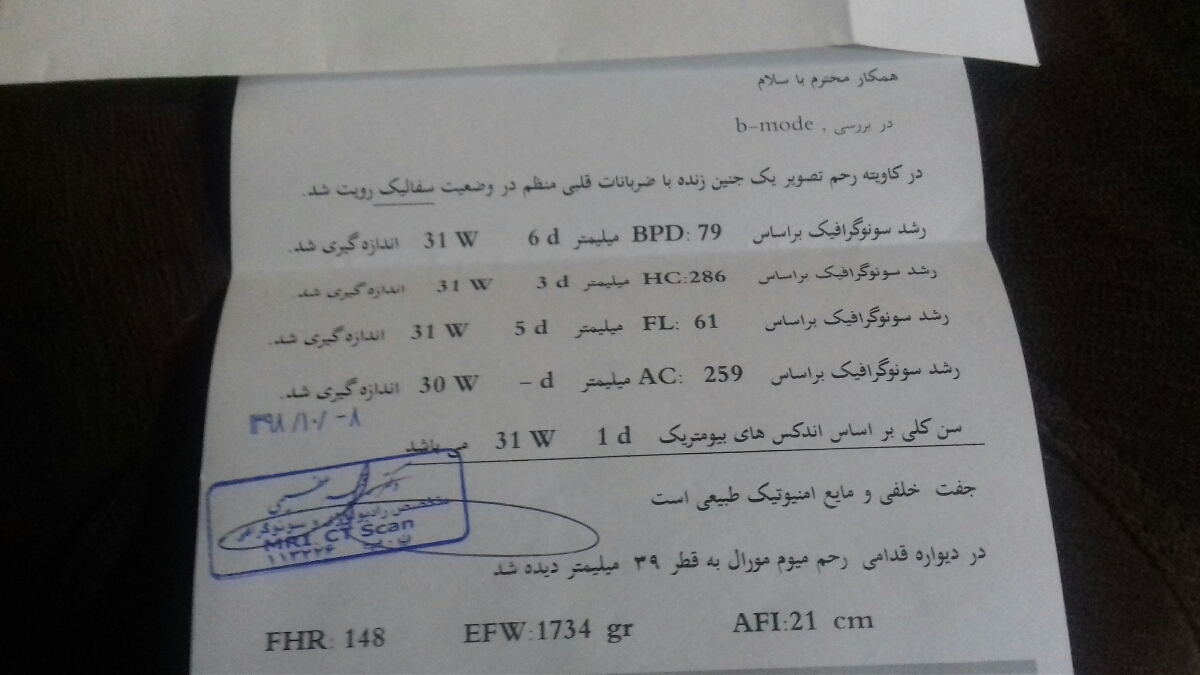 همکار محترم با سلام
در بررسی , b-mode
در کاویته رحم تصویر یک جنین زنده با ضربانات قلبی منظم در وضعیت سفالیک رویت شد.
رشد سونوگرافیک براساس BPD: 79 میلیمتر 31 W 6 d اندازه گیری شد.
رشد سونوگرافیک براساس HC:286 میلیمتر 31 W 3 d اندازه گیری شد.
رشد سونوگرافیک براساس FL: 61 میلیمتر 31 W 5 d اندازه گیری شد.
رشد سونوگرافیک براساس AC: 259 میلیمتر 30 W - d اندازه گیری شد.
۱۳۹۸/۱۰/-۸
سن کلی بر اساس اندکس های بیومتریک 31 W 1 d می باشد
جفت خلفی و مایع امنیوتیک طبیعی است
دکتر
متخصص رادیولوژی و سونوگرافی
MRI. CT Scan
ن.پ ۱۱۳۲۲۶
در دیواره قدامی رحم میوم مورال به قطر ۳۹ میلیمتر دیده شد
FHR: 148 EFW:1734 gr AFI:21 cm